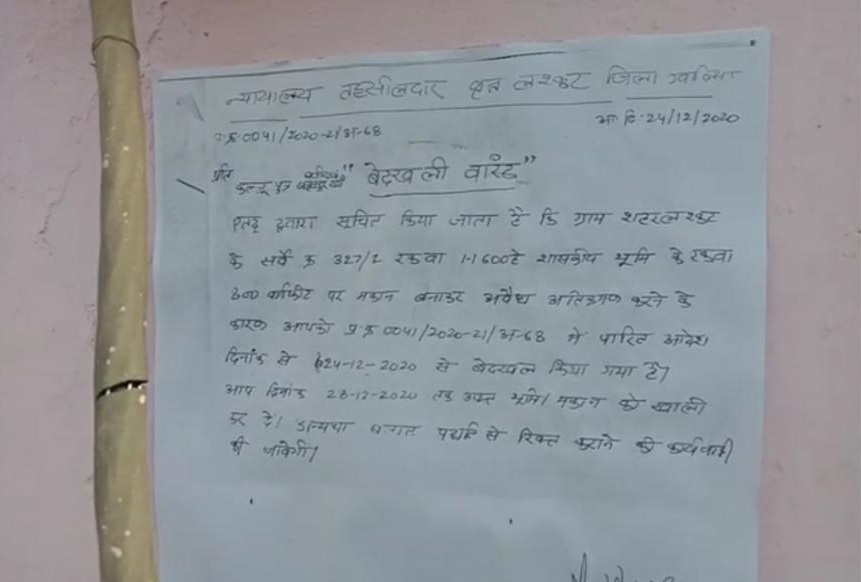 न्यायालय तहसीलदार वृत्त लश्कर जिला ग्वालियर
प्र.क्र. 0041/2020-21/अ-68
आ. दि. 24/12/2020
प्रति
कल्लू पुत्र
"बेदखली वारंट"
एतद् द्वारा सूचित किया जाता है कि ग्राम शहर लश्कर
के सर्वे क्र 327/2 रकवा 1.1600 हे शासकीय भूमि के रकवा
600 वर्गफीट पर मकान बनाकर अवैध अतिक्रमण करने के
कारण आपको प्र.क्र. 0041/2020-21/अ-68 में पारित आदेश
दिनांक से 24-12-2020 से बेदखल किया गया है।
आप दिनांक 28-12-2020 तक उक्त भूमि/मकान को खाली
कर दें। अन्यथा से रिक्त कराने की कार्यवाही
की जावेगी।